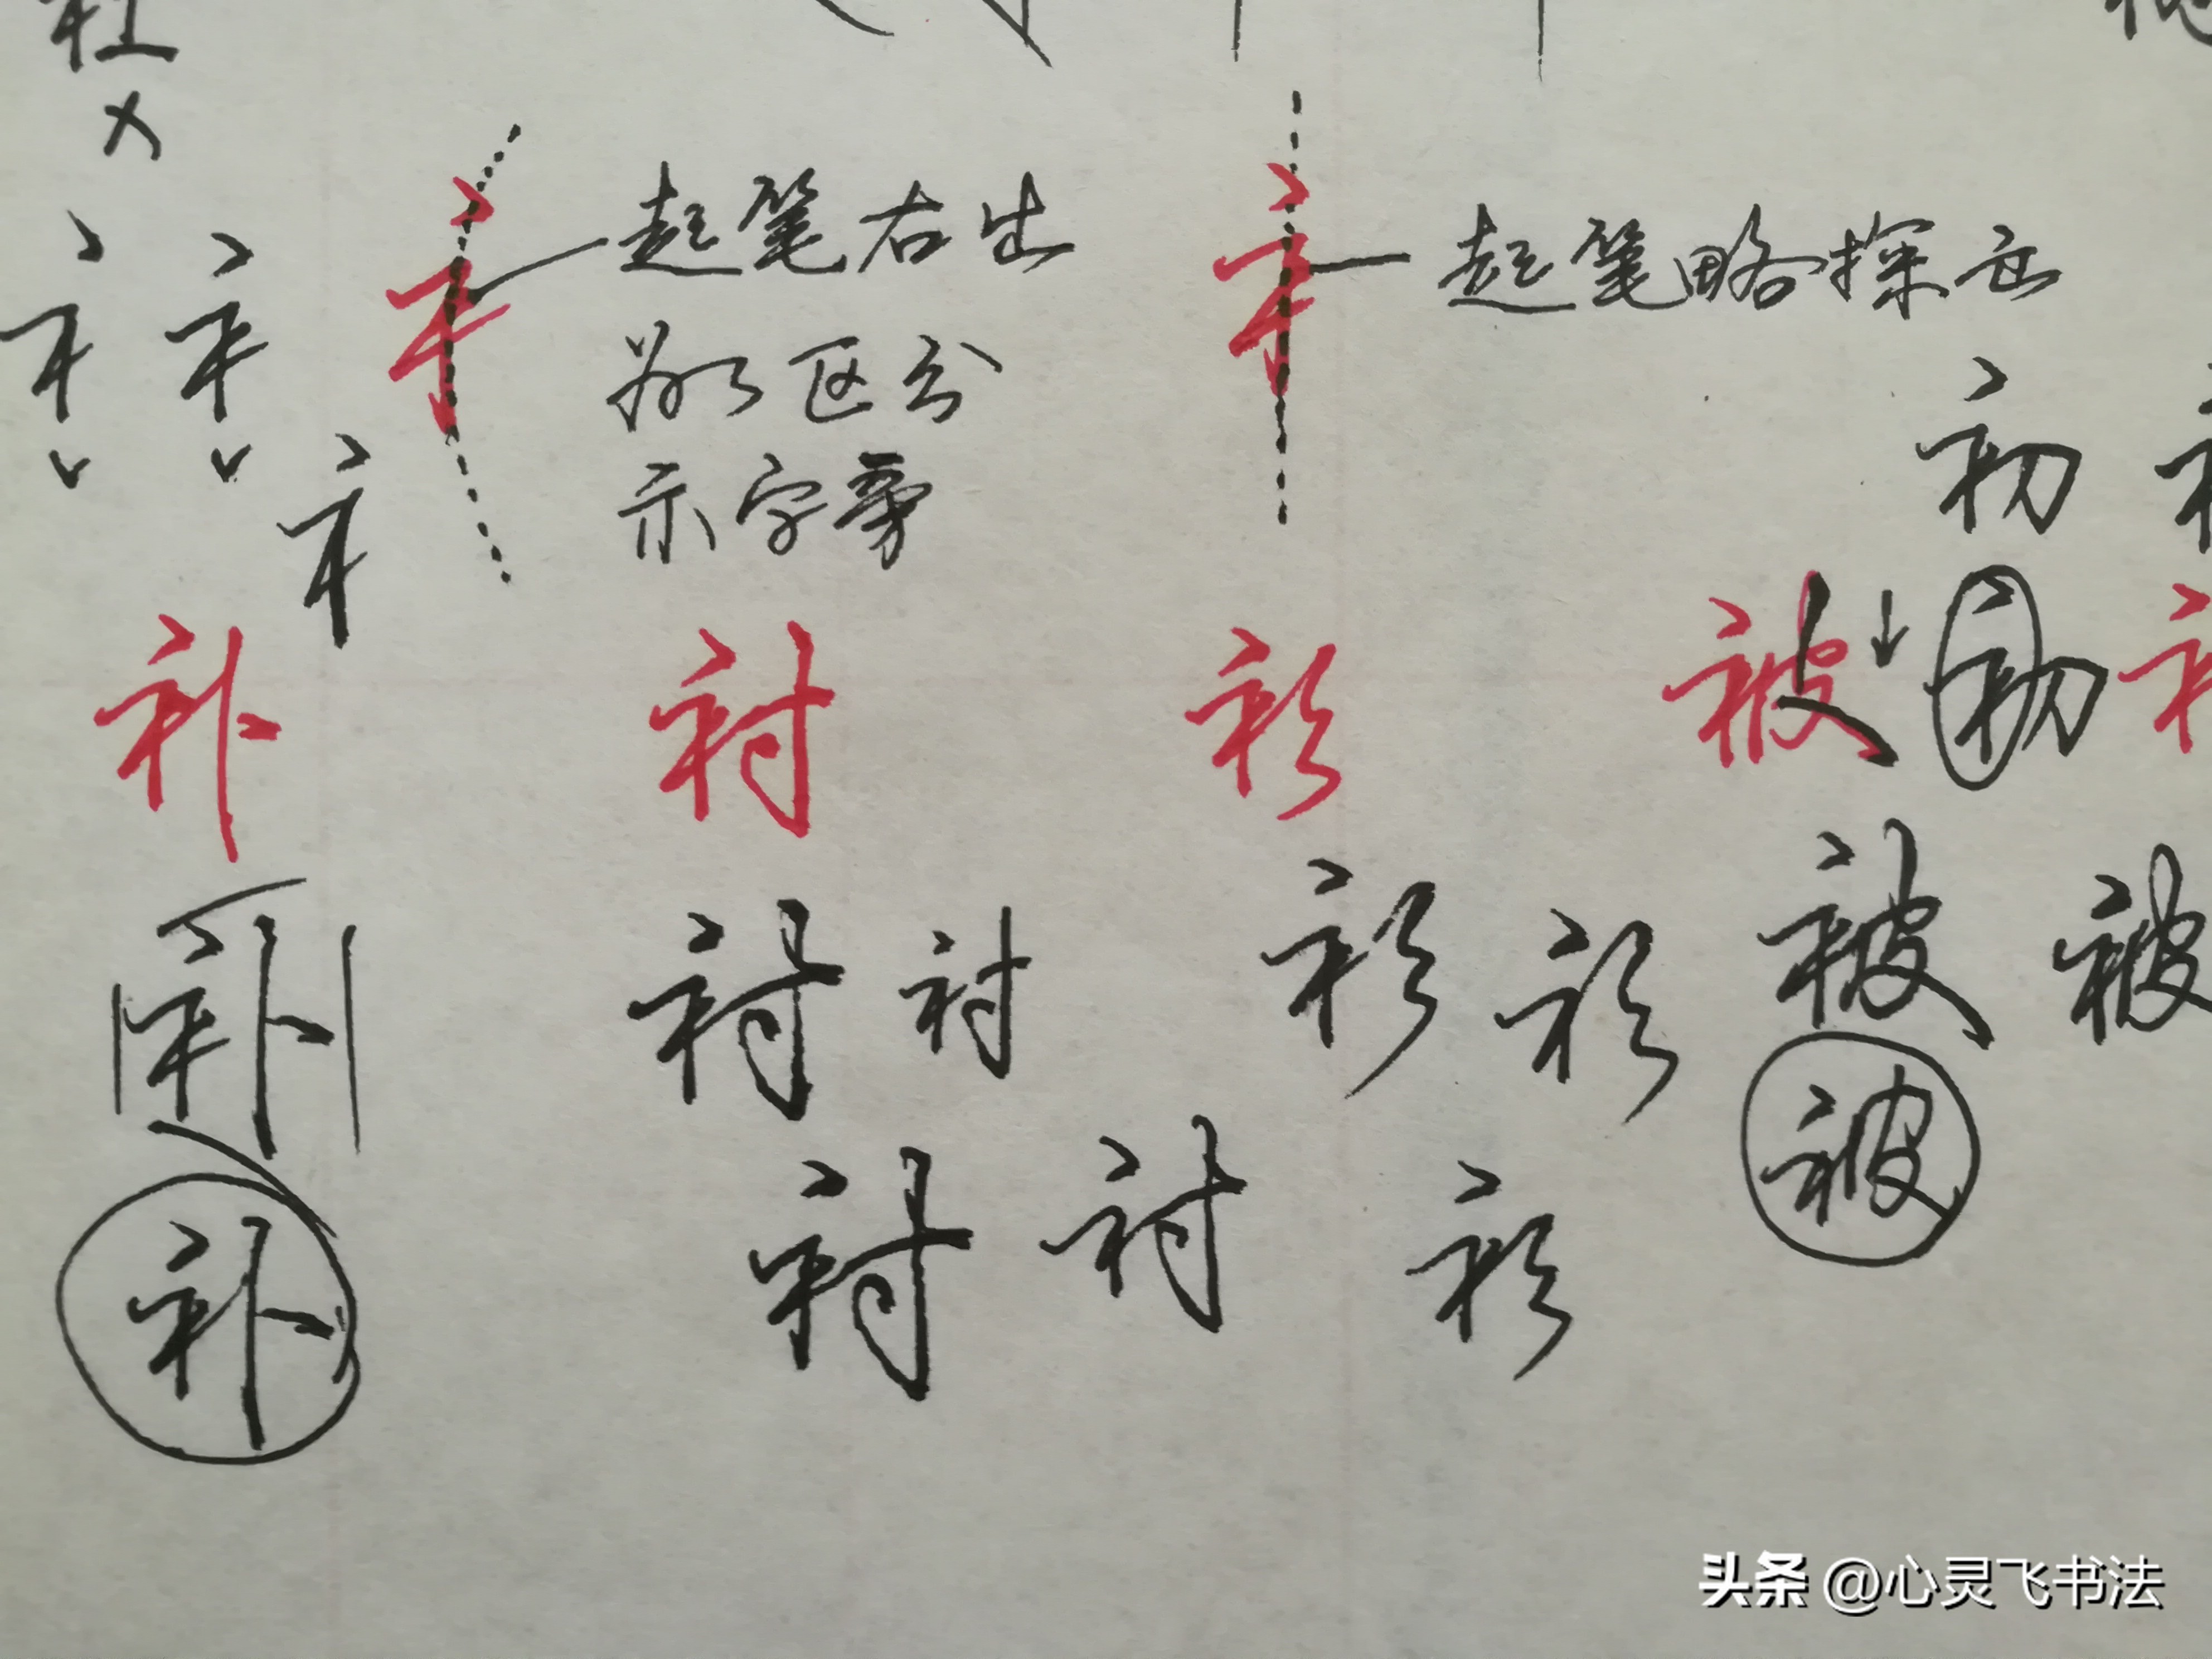 社
×
衤 衤 衤 起笔右出
为了区分
示字旁
衤
衤 起笔略探出
初
补 衬 衫 被 初
补 衬 衬 衫 衫 被 被
补 衬 衬 衫 被
头条 @心灵飞书法